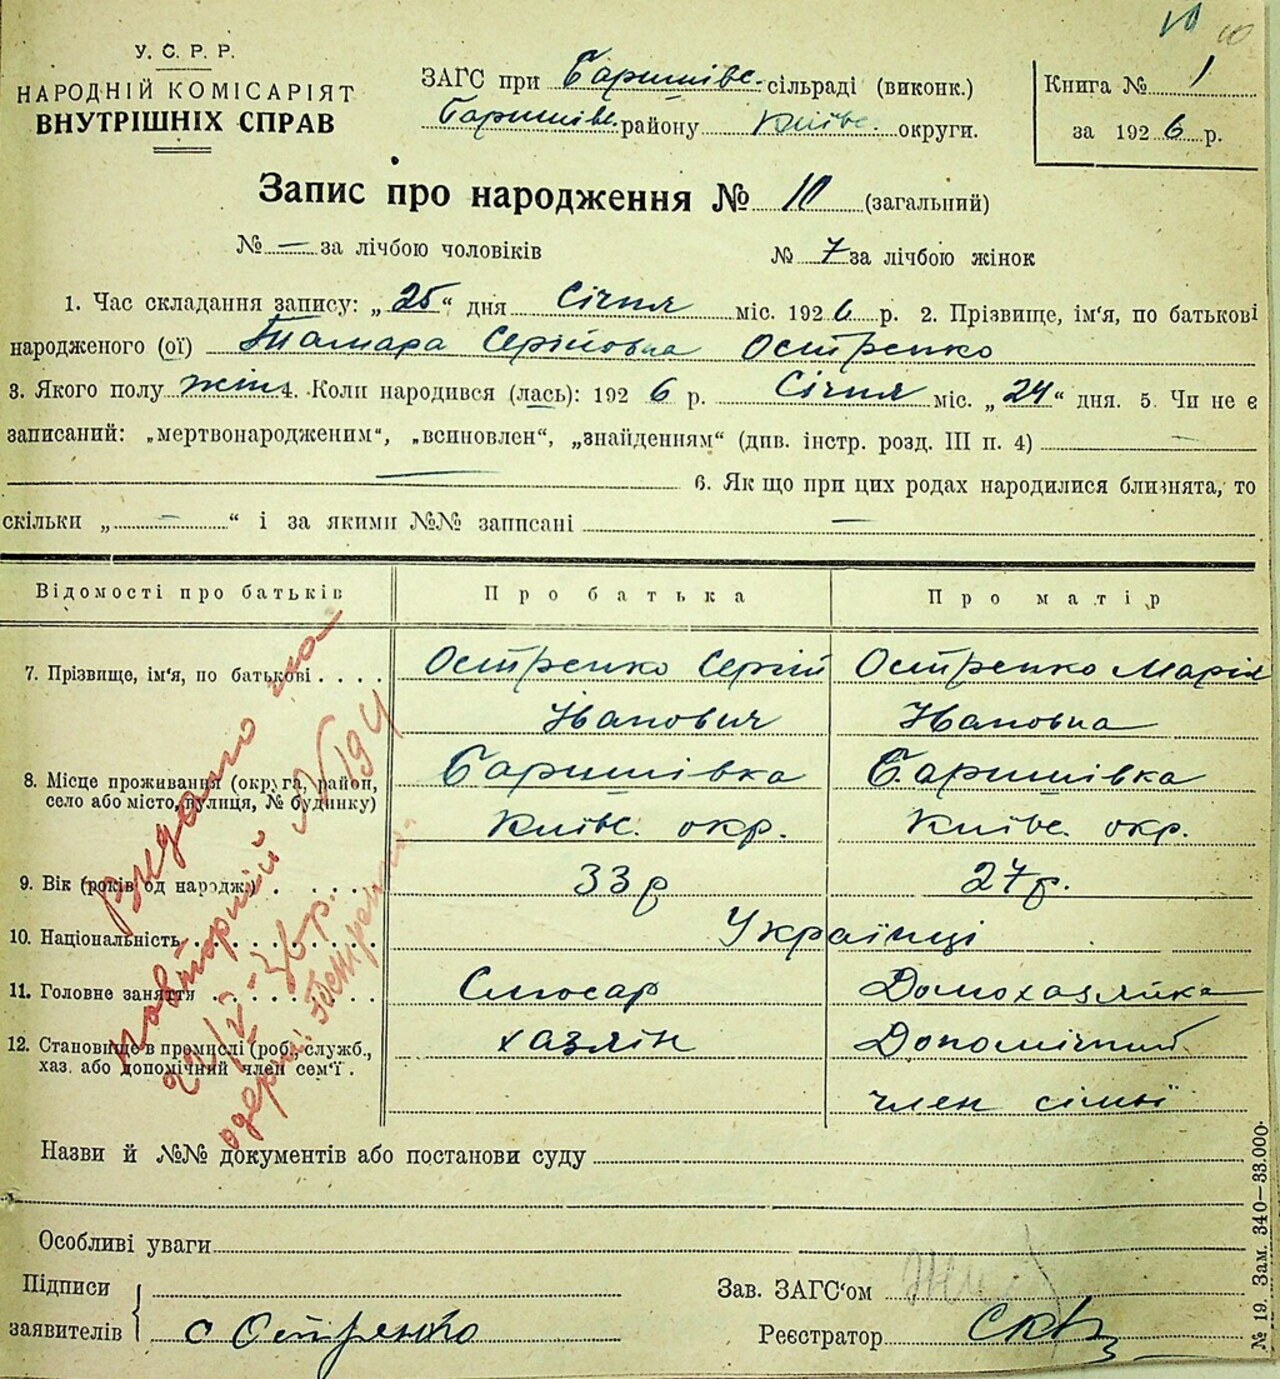 10 10
У. С. Р. Р.
НАРОДНІЙ КОМІСАРІЯТ
ВНУТРІШНІХ СПРАВ
ЗАГС при Баришівс. сільраді (виконк.)
Баришівс. району Київс. округи.
Книга № 1
за 1926 р.
Запис про народження № 10 (загальний)
№ — за лічбою чоловіків № 7 за лічбою жінок
1. Час складання запису: „25“ дня Січня міс. 1926 р. 2. Прізвище, ім'я, по батькові
народженого (ої) Тамара Серійовна Остренко
3. Якого полу жін. 4. Коли народився (лась): 1926 р. Січня міс. „24“ дня. 5. Чи не є
записаний: „мертвонародженим“, „всиновлен“, „знайденням“ (див. інстр. розд. III п. 4) —
— 6. Як що при цих родах народилися близнята, то
скільки „ — “ і за якими №№ записані —
Відомості про батьків Про батька Про матір
7. Прізвище, ім'я, по батькові . . . . Остренко Сергій Остренко Марія
Іванович Івановна
8. Місце проживання (округа, район, село або місто, вулиця, № будинку) Баришівка Баришівка
Київс. окр. Київс. окр.
9. Вік (років од народж.) . . . . 33 р 27 р.
10. Національність . . . . . . . . . Українці
11. Головне заняття . . . . . . . . Слюсар Домохазяйка
12. Становище в промислі (роб., служб., хаз. або допомічний член сем'ї . хазяін Допомічний
член сімьї
видано на
повторний № 194
21/2-36р.
одерж.
Назви й №№ документів або постанови суду
Особливі уваги
Підписи
заявителів } С Остренко
Зав. ЗАГС'ом
Реєстратор
№ 19. Зам. 340—33.000.